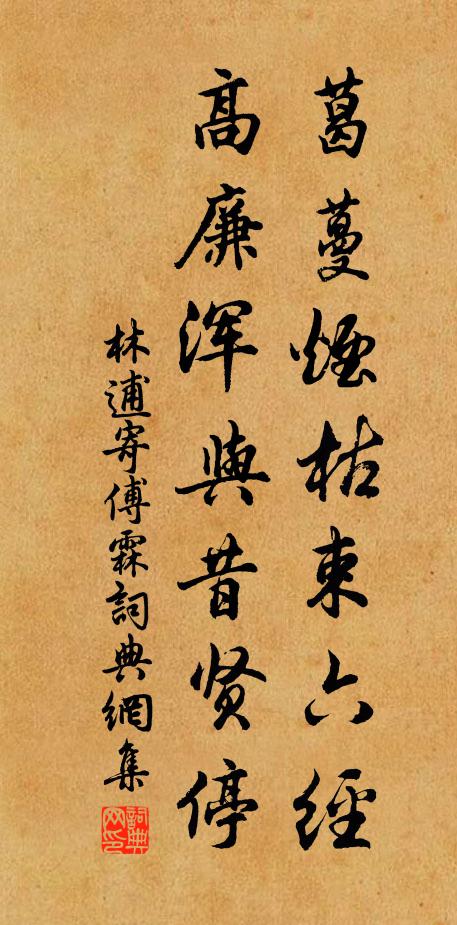 葛蔓煙枯束六經
高廉浑與昔贤停
林逋寄傅霖詞典網集
詞典网印